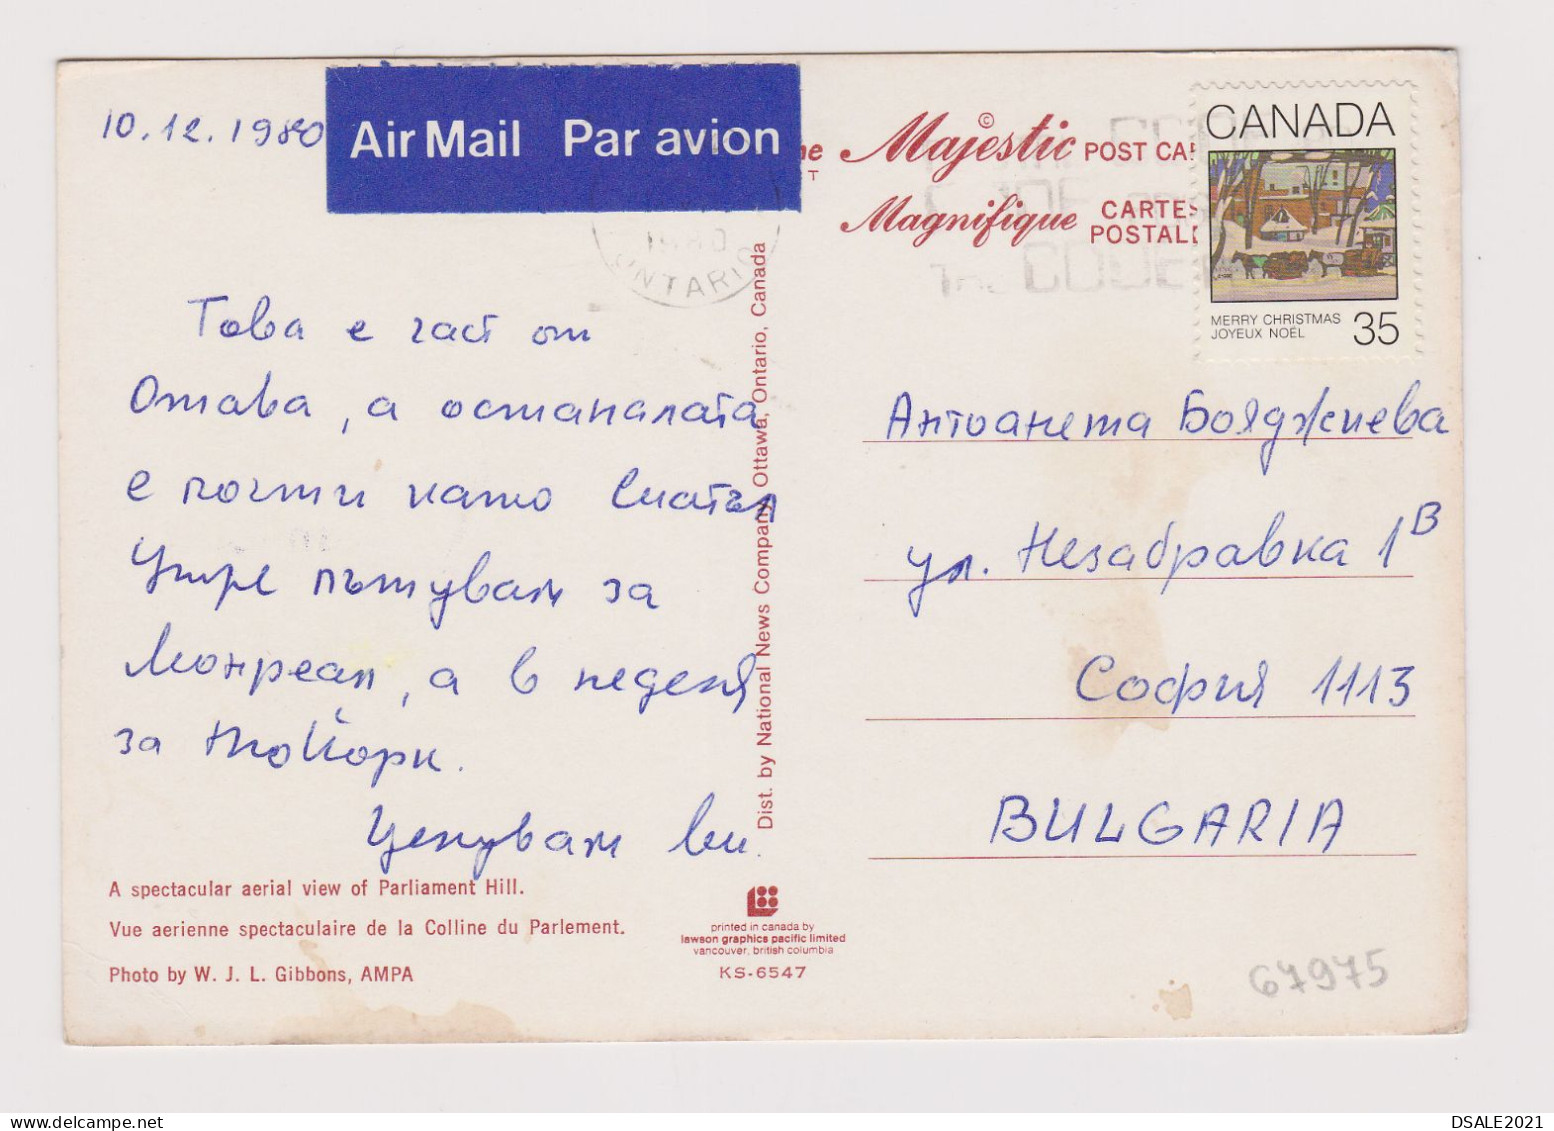 10.12.1980
Air Mail Par avion
Majestic POST CAR
Magnifique CARTES
POSTALE
CANADA
MERRY CHRISTMAS
JOYEUX NOËL 35
1980
ONTARIO
CODE
Това е част от
Отава, а останалата
е почти като
Утре пътувам за
Монреал, а в неделя
за Ню Йорк.
Целувам ви.
Антоанета Бояджиева
ул. Незабравка 1В
София 1113
BULGARIA
Dist. by National News Company, Ottawa, Ontario, Canada
A spectacular aerial view of Parliament Hill.
Vue aerienne spectaculaire de la Colline du Parlement.
Photo by W. J. L. Gibbons, AMPA
printed in canada by
lawson graphics pacific limited
vancouver, british columbia
KS-6547
67975
DSALE2021